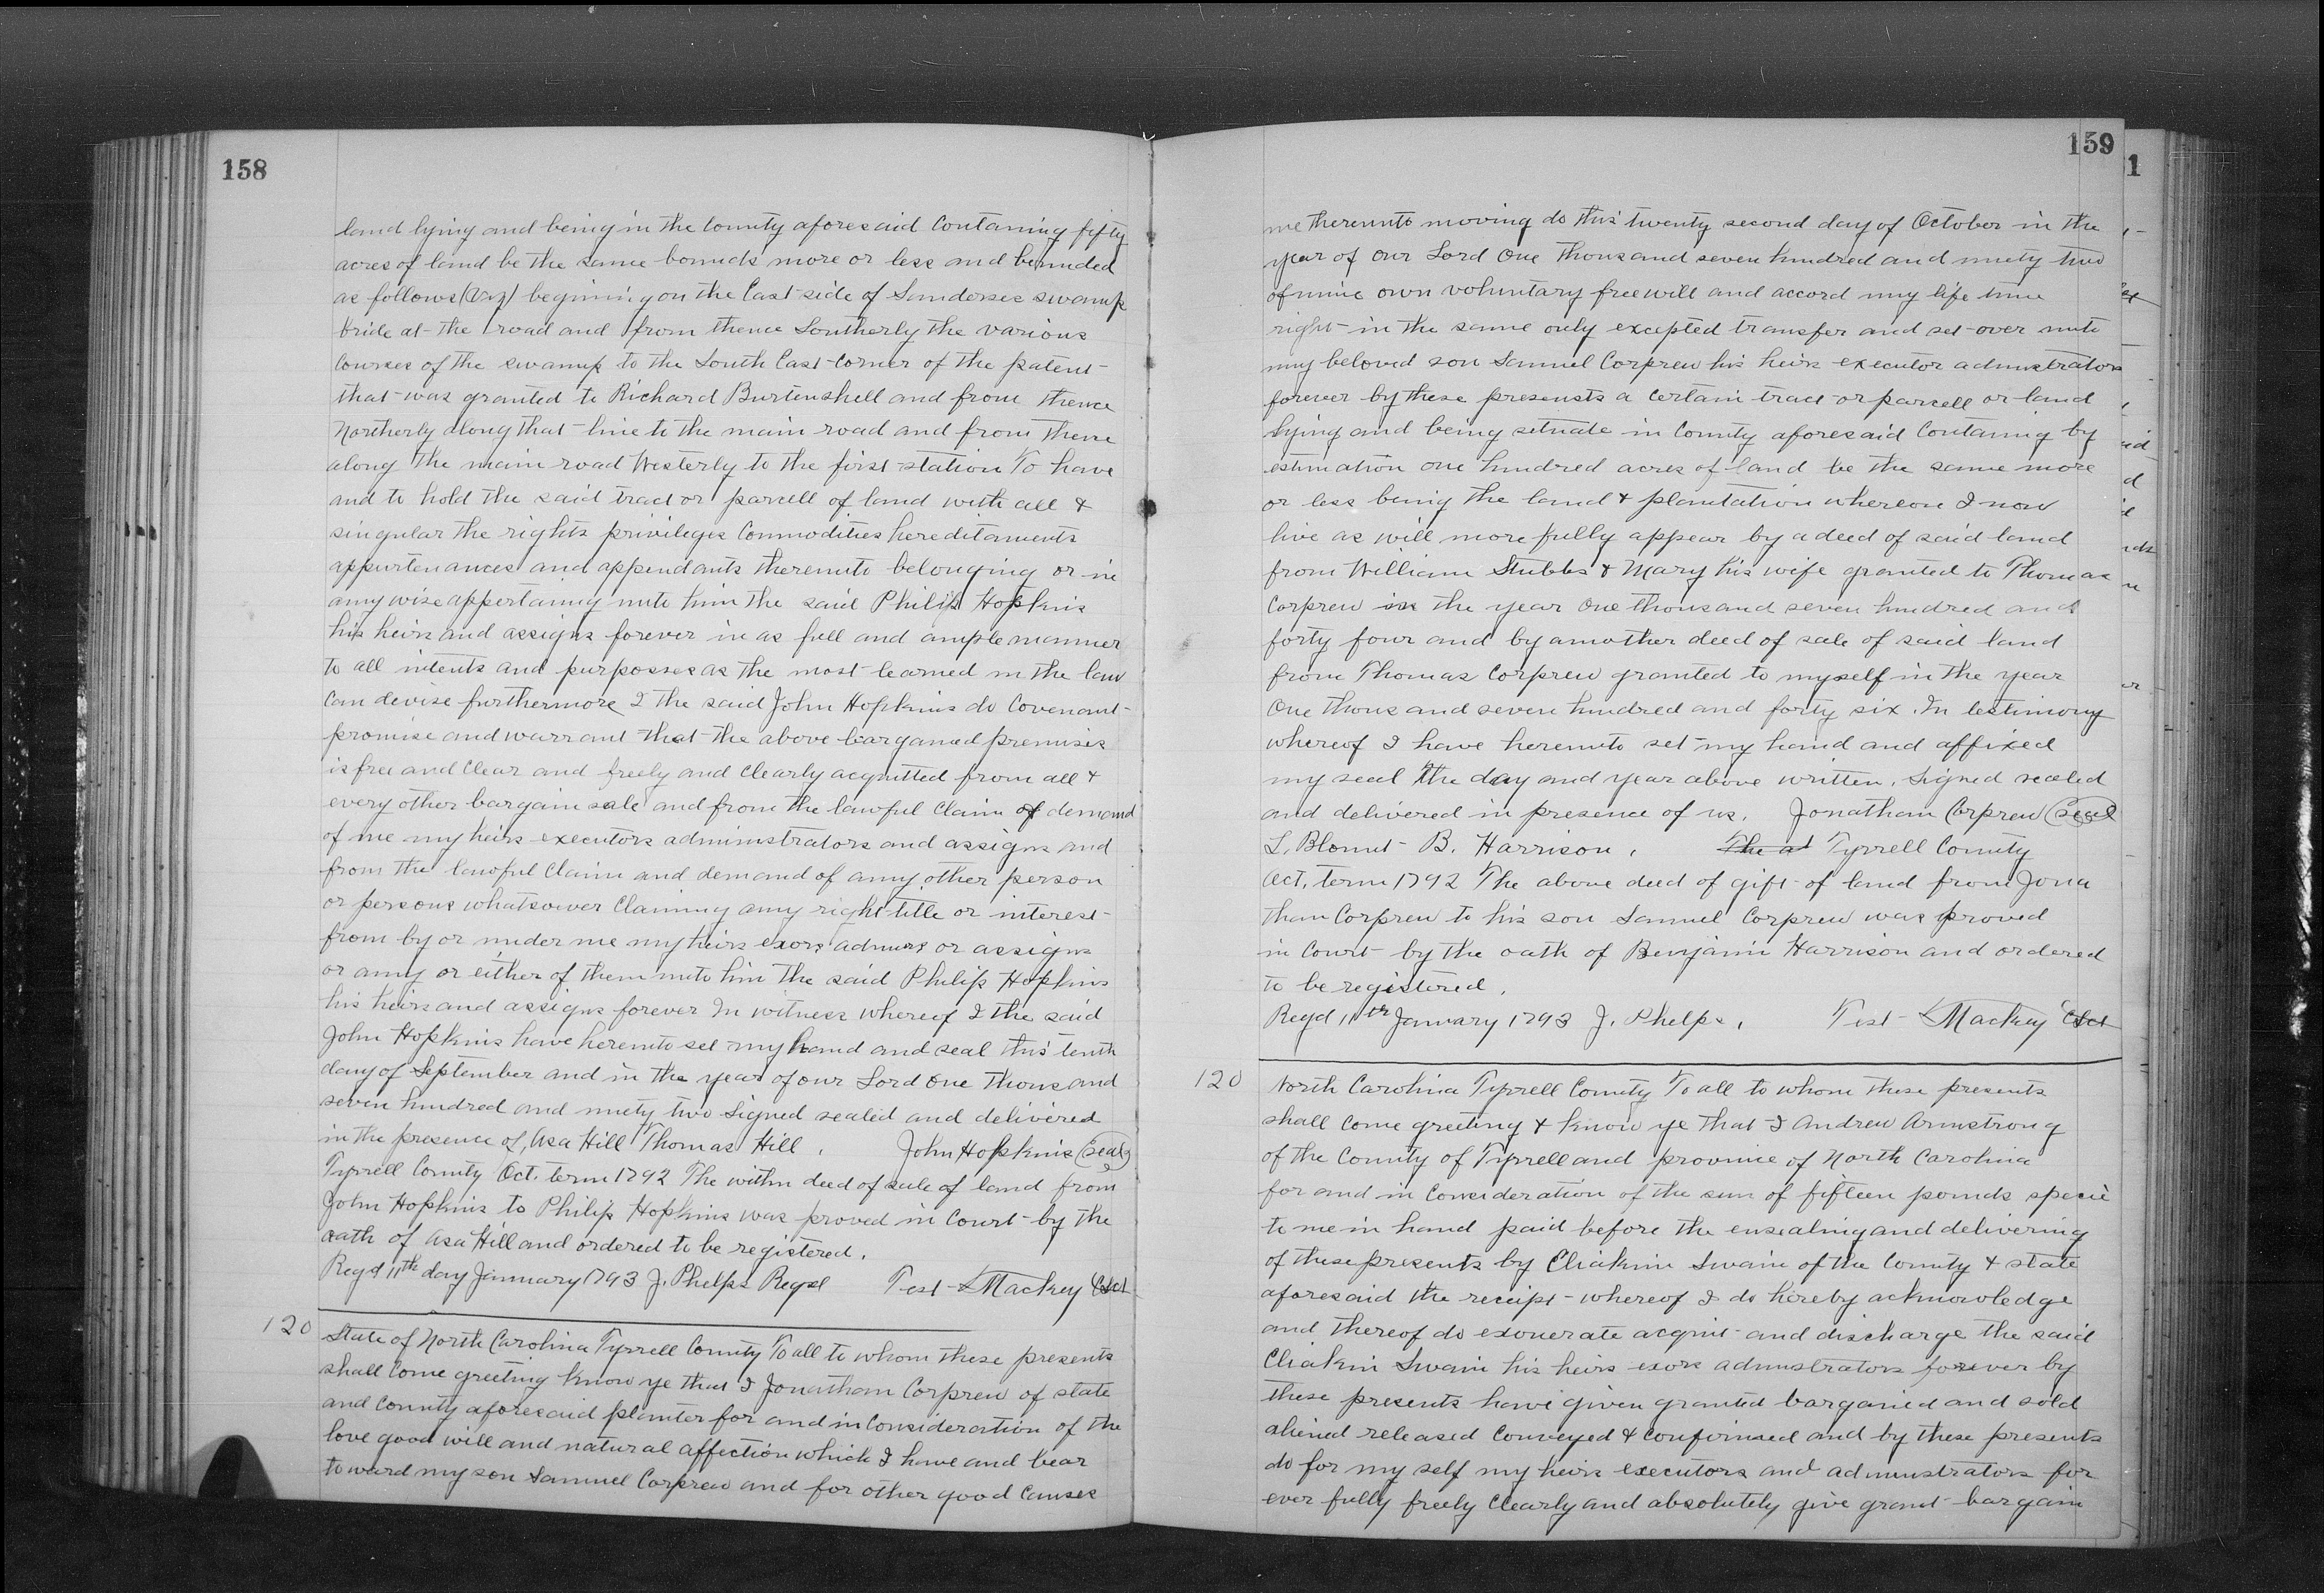 158
land lying and being in the County aforesaid Containing fifty
acres of land be the same bounds more or less and bounded
as follows (viz) begining on the East side of Sanderses swamp
bride at the road and from thence Southerly the various
Courses of the swamp to the South East Corner of the patent
that was granted to Richard Burtenshell and from thence
Northerly along that line to the main road and from thence
along the main road Westerly to the first station To have
and to hold the said tract or parsell of land with all &
singular the rights privileges Commodities hereditaments
appurtenances and appendants thereunto belonging or in
any wise appertaining unto him the said Philip Hopkins
his heirs and assigns forever in as full and ample manner
to all intents and purposses as the most learned in the law
Can devise furthermore I the said John Hopkins do Covenant
promise and warrant that the above bargained premises
is free and Clear and freely and Clearly acquitted from all &
every other bargain sale and from the lawful Claim of demand
of me my heirs executors administrators and assigns and
from the lawful Claim and demand of any other person
or persons whatsower Claiming any right title or interest
from by or under me my heirs exors admrs or assigns
or any or either of them unto him the said Philip Hopkins
his heirs and assigns forever In witness whereof I the said
John Hopkins have hereunto set my hand and seal this tenth
day of September and in the year of our Lord One thousand
seven hundred and ninety two Signed sealed and delivered
in the presence of, Asa Hill Thomas Hill. John Hopkins (Seal)
Tyrrell County Oct. term 1792 The within deed of sale of land from
John Hopkins to Philip Hopkins was proved in Court by the
oath of Asa Hill and ordered to be registered.
Regd 11th day January 1793 J. Phelps Regst Test Mackey Csct
120 State of North Carolina Tyrrell County To all to whom these presents
shall Come greeting know ye that I Jonathan Corprew of state
and County aforesaid planter for and in Consideration of the
love good will and natural affection which I have and bear
toward my son Samuel Corprew and for other good Causes
159
1
me thereunto moving do this twenty second day of October in the
year of our Lord One thousand seven hundred and ninety two
of mine own voluntary free will and accord my life time
right in the same only excepted transfer and set over unto
my beloved son Samuel Corprew his heirs executor admistrators
forever by these presensts a Certain tract or parsell or land
lying and being setuate in County aforesaid Containig by
estimation one hundred acres of land be the same more
or less being the land & plantation whereon I now
live as will more fully appear by a deed of said land
from William Stubbs & Mary his wife granted to Thomas
Corprew in the year One thousand seven hundred and
forty four and by amother deed of sale of said land
from Thomas Corprew granted to myself in the year
One thousand seven hundred and forty six. In testimony
whereof I have hereunto set my hand and affixed
my seal the day and year above written. Signed sealed
and delivered in presence of us. Jonathan Corprew (Seal)
L. Blount B. Harrison. The a Tyrrell County
Oct. term 1792 The above deed of gift of land from Jona
than Corprew to his son Samuel Corprew was proved
in Court by the oath of Benjamin Harrison and ordered
to be registered.
Regd 11th January 1793 J. Phelps. Test Mackey Csct
120 North Carolina Tyrrell County To all to whom these presents
shall Come greeting & know ye that I Andrew Armstrong
of the County of Tyrrell and province of North Carolina
for and in Consideration of the sum of fifteen pounds specie
to me in hand paid before the ensealing and delivering
of these presents by Eliakim Swain of the County & state
aforesaid the receipt whereof I do hereby acknowledge
and thereof do exonerate acquit and discharge the said
Eliakim Swain his heirs exors admistrators forever by
these presents have given granted bargained and sold
aliened released Conveyed & Confirmed and by these presents
do for my self my heirs executors and administrators for
ever fully freely Clearly and absolutely give grant bargain